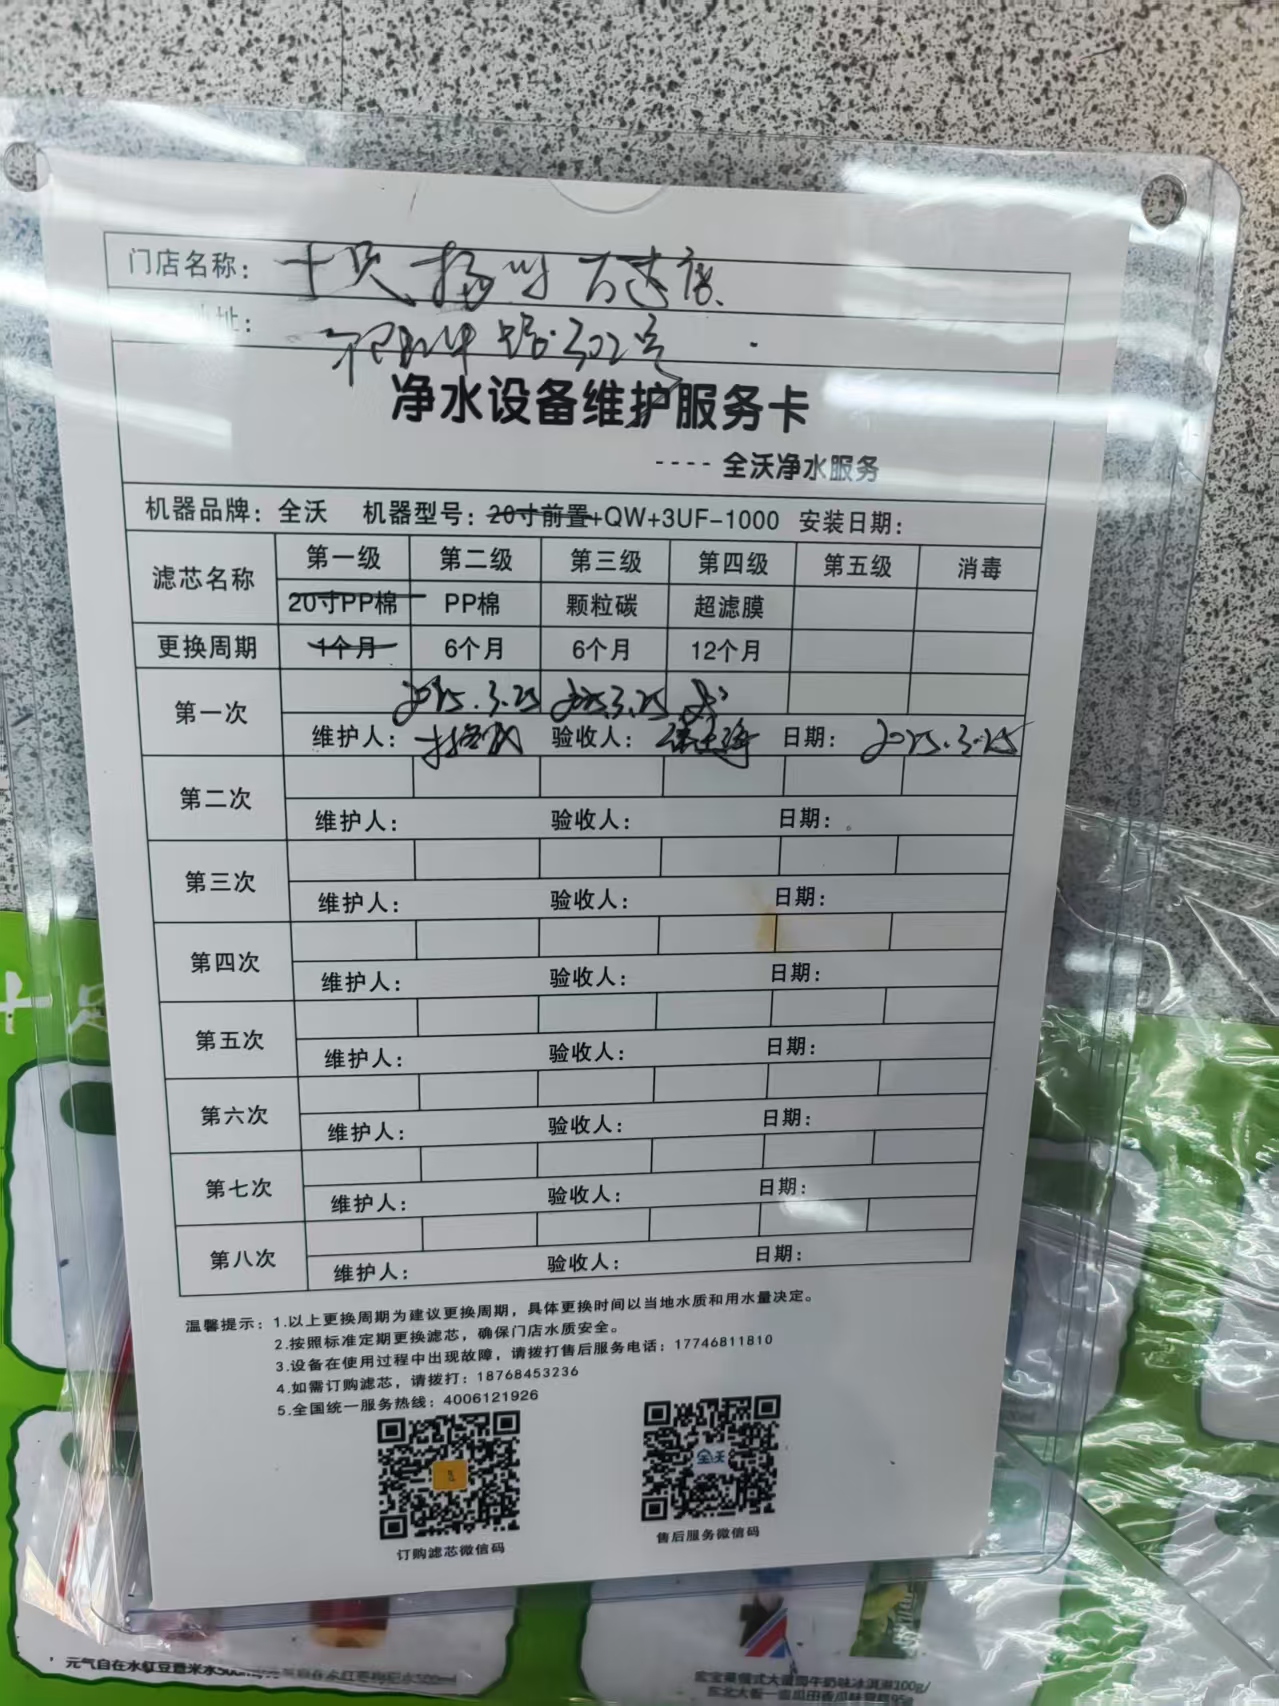 门店名称：十足扬州万达店
地址：
路302号
净水设备维护服务卡
---- 全沃净水服务
机器品牌：全沃 机器型号：20寸前置+QW+3UF-1000 安装日期：
滤芯名称 第一级 第二级 第三级 第四级 第五级 消毒
20寸PP棉 PP棉 颗粒碳 超滤膜
更换周期 1个月 6个月 6个月 12个月
第一次 2025.3.25 2025.3.25
维护人： 验收人： 日期：2025.3.25
第二次
维护人： 验收人： 日期：
第三次
维护人： 验收人： 日期：
第四次
维护人： 验收人： 日期：
第五次
维护人： 验收人： 日期：
第六次
维护人： 验收人： 日期：
第七次
维护人： 验收人： 日期：
第八次
维护人： 验收人： 日期：
温馨提示：1.以上更换周期为建议更换周期，具体更换时间以当地水质和用水量决定。
2.按照标准定期更换滤芯，确保门店水质安全。
3.设备在使用过程中出现故障，请拨打售后服务电话：17746811810
4.如需订购滤芯，请拨打：18768453236
5.全国统一服务热线：4006121926
全沃
订购滤芯微信码 售后服务微信码
十足
元气自在水红豆薏米水500ml